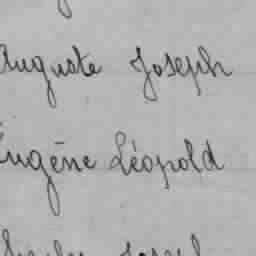 Auguste Joseph
Eugène Léopold